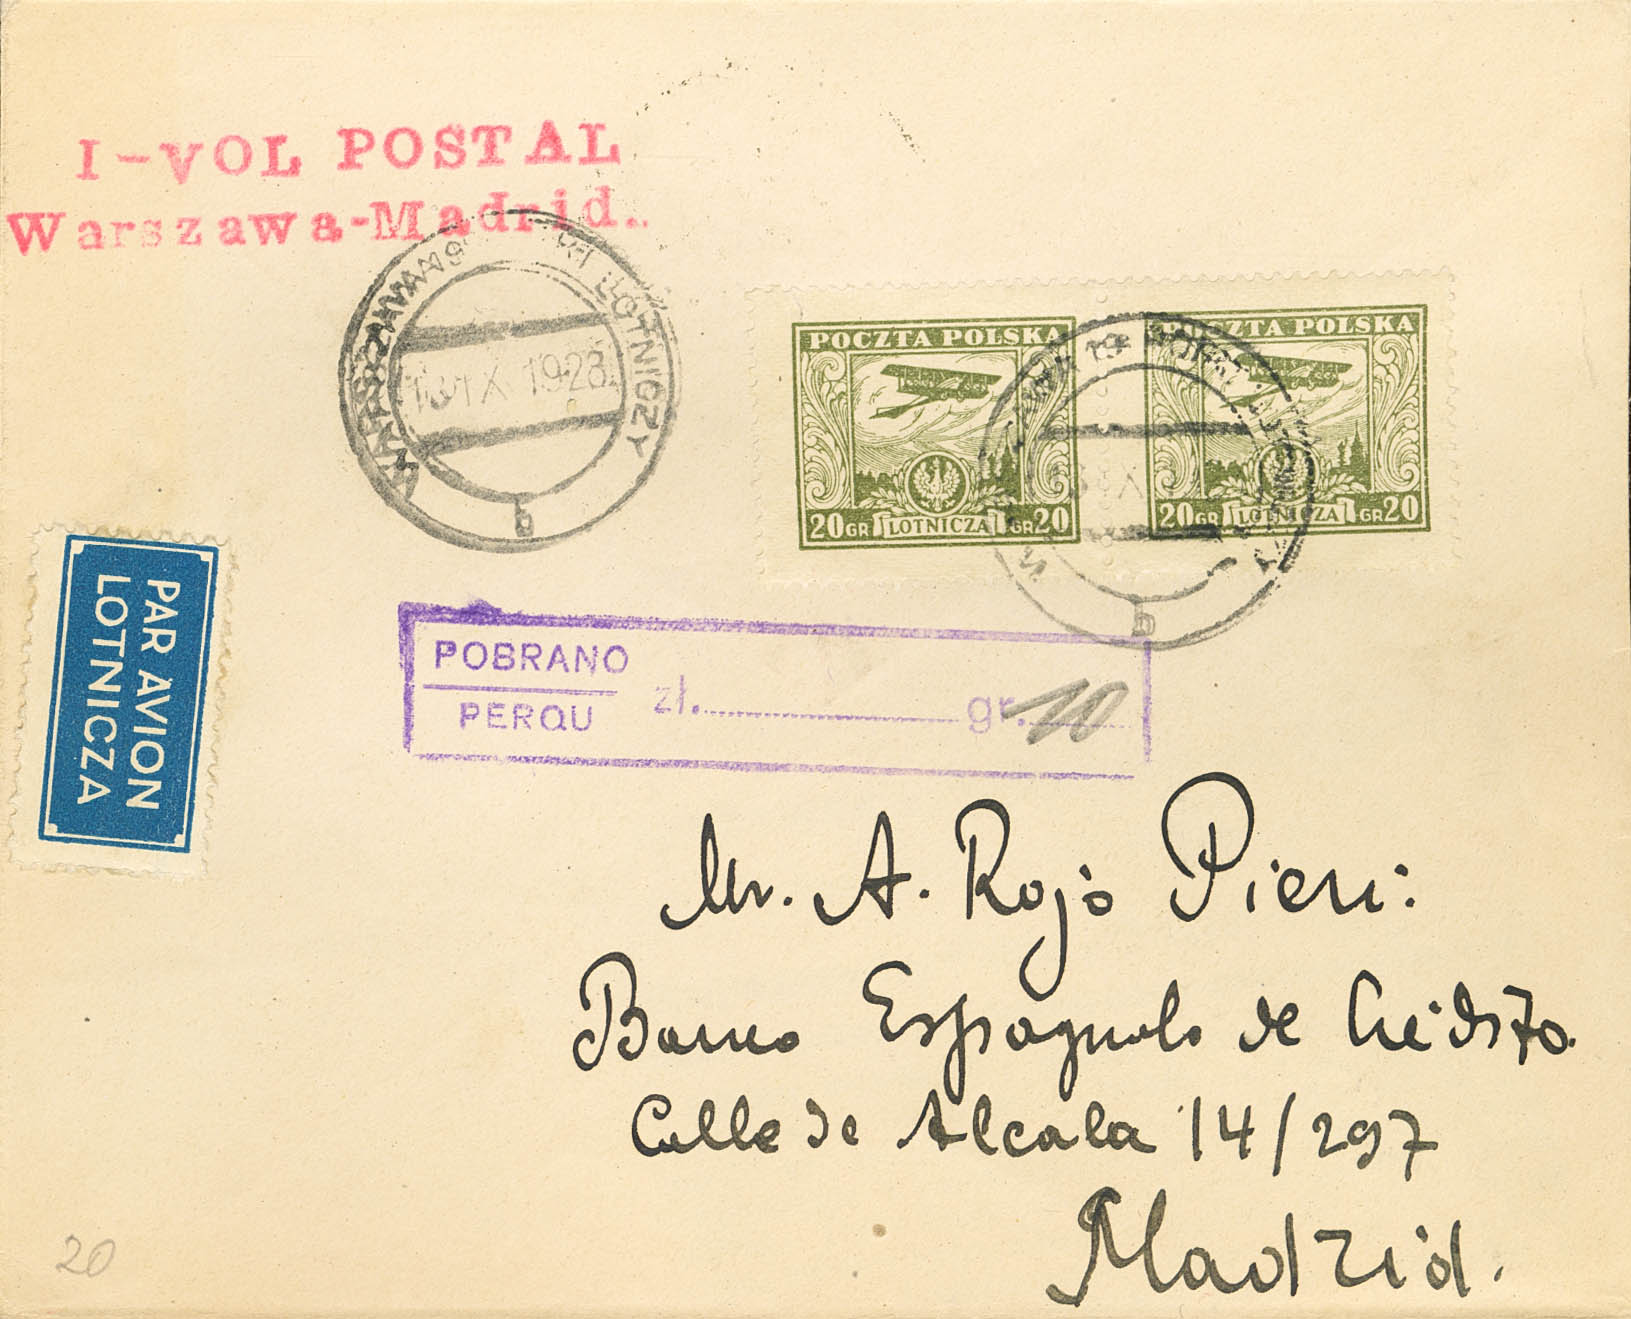 I-VOL POSTAL
Warszawa-Madrid.
WARSZAWA 19 PORT LOTNICZY
IX 1928
b
POCZTA POLSKA
20 GR LOTNICZA GR 20
POCZTA POLSKA
20 GR LOTNICZA GR 20
b
PAR AVION
LOTNICZA
POBRANO
PERQU
zł. gr. 10
Mr. A. Rojo Pieri:
Banco Espagnolo de Crédito.
Calle de Alcala 14/297
Madrid.
20